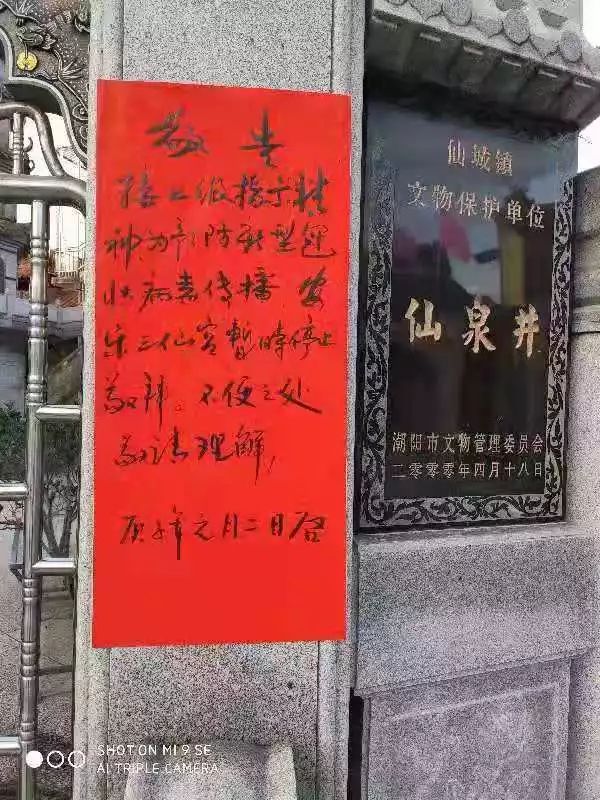 敬告
接上级指示精
神为预防新型冠
状病毒传播 安
乐三仙宫暫時停止
敬拜。不便之处
敬请理解,
庚子年元月二日啓
仙城镇
文物保护单位
仙泉井
潮阳市文物管理委员会
二〇〇〇年四月十八日
SHOT ON MI 9 SE
AI TRIPLE CAMERA